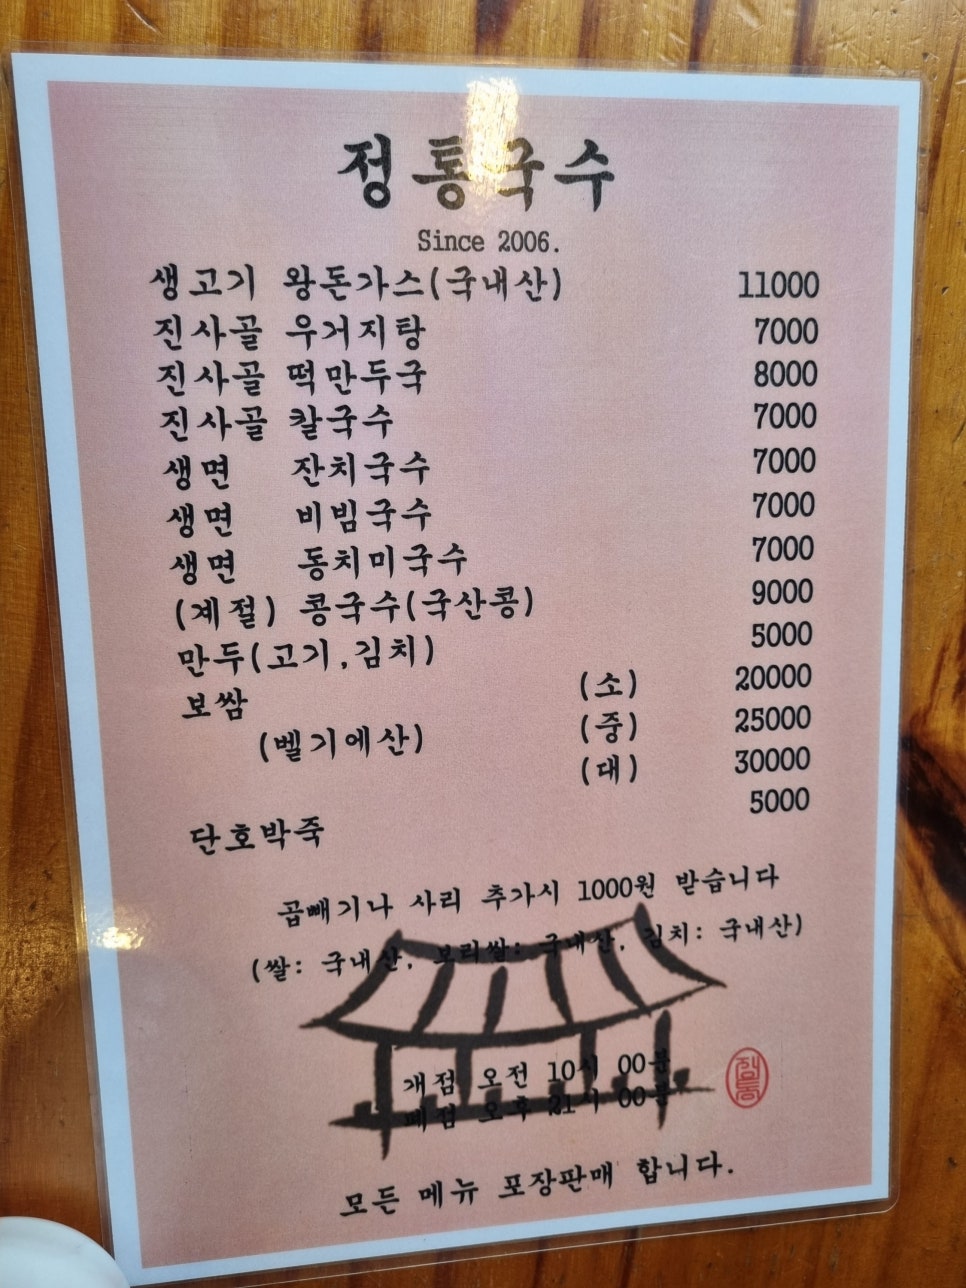 정통국수
Since 2006.
생고기 왕돈가스(국내산) 11000
진사골 우거지탕 7000
진사골 떡만두국 8000
진사골 칼국수 7000
생면 잔치국수 7000
생면 비빔국수 7000
생면 동치미국수 7000
(계절) 콩국수(국산콩) 9000
만두(고기,김치) 5000
보쌈 (소) 20000
(벨기에산) (중) 25000
(대) 30000
단호박죽 5000
곱빼기나 사리 추가시 1000원 받습니다
(쌀: 국내산, 보리쌀: 국내산, 김치: 국내산)
개점 오전 10시 00분
폐점 오후 21시 00분
모든 메뉴 포장판매 합니다.